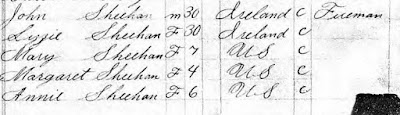 John Sheehan m 30 Ireland C Fireman
Lizzie Sheehan F 30 Ireland C
Mary Sheehan F 7 U S C
Margaret Sheehan F 4 U S C
Annie Sheehan F 6 U S C